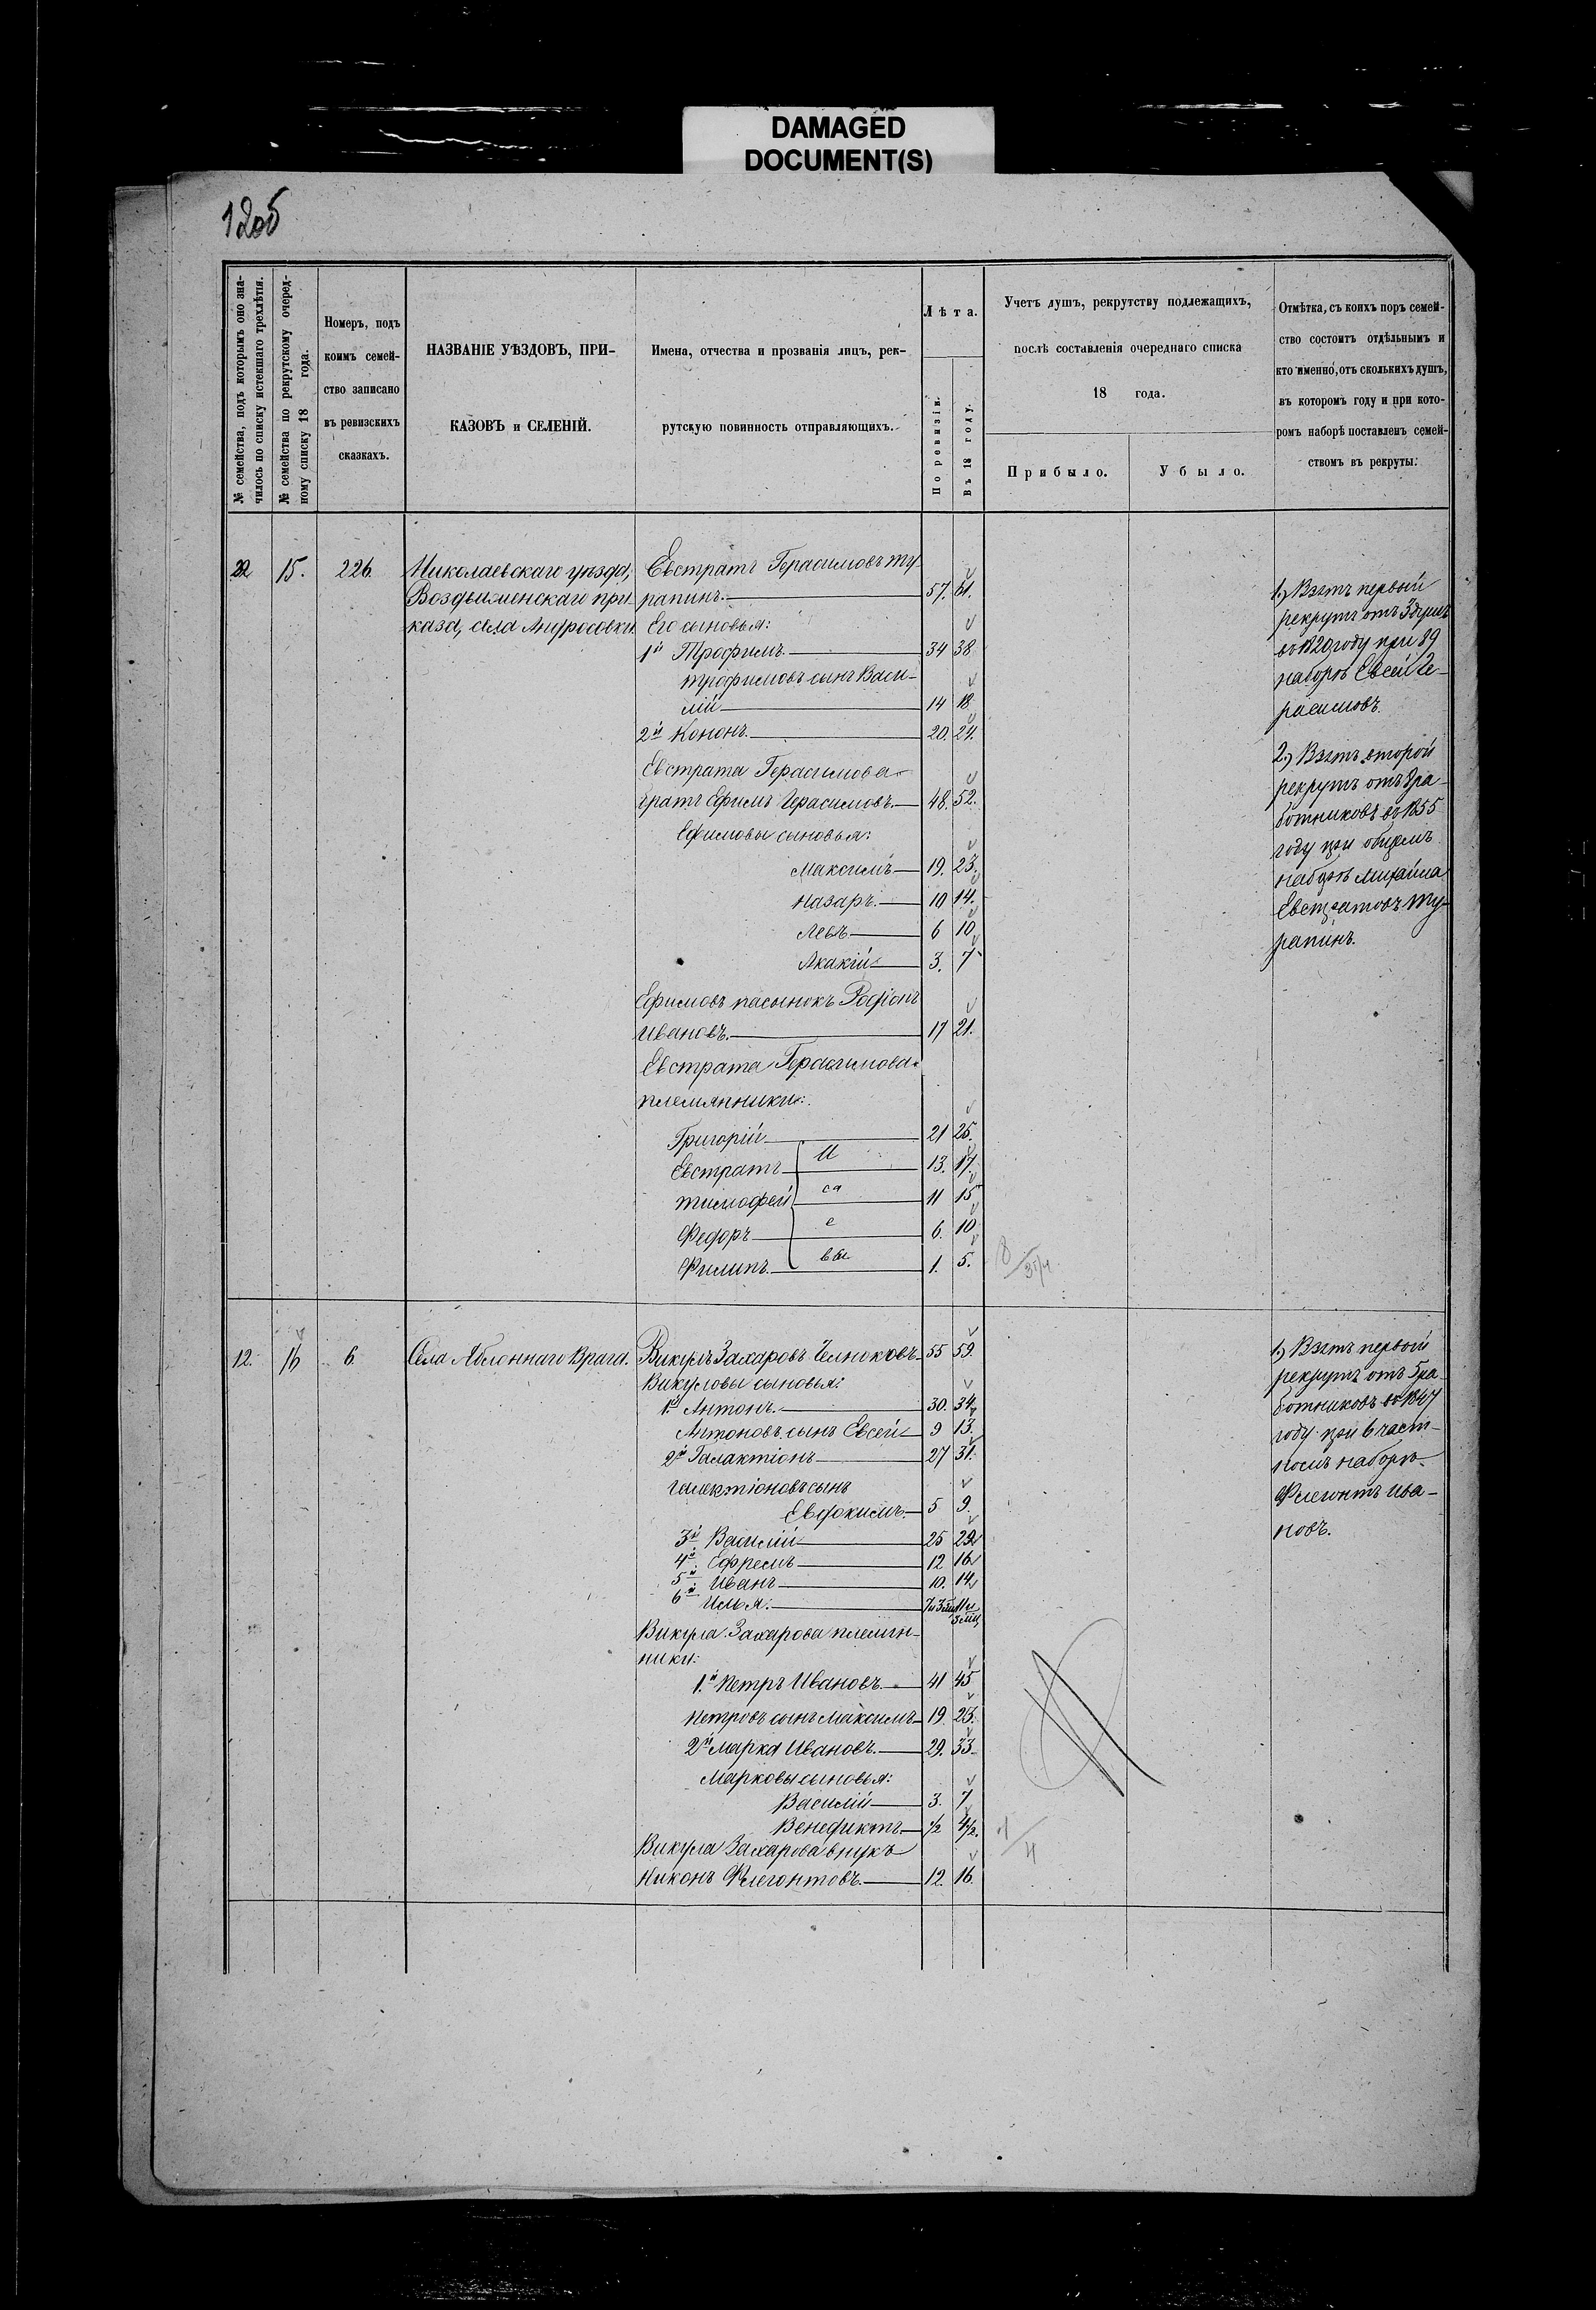 DAMAGED
DOCUMENT(S)
1205
№ семейства, подъ которымъ оно зна-
чилось по списку истекшаго трехлѣтія.
№ семейства по рекрутскому очеред-
ному списку 18 года.
Номеръ, подъ
коимъ семей-
ство записано
въ ревизскихъ
сказкахъ.
НАЗВАНІЕ УѢЗДОВЪ, ПРИ-
КАЗОВЪ и СЕЛЕНІЙ.
Имена, отчества и прозванія лицъ, рек-
рутскую повинность отправляющихъ.
Лѣта.
По ревизіи.
Въ 18 году.
Учетъ душъ, рекрутству подлежащихъ,
послѣ составленія очереднаго списка
18 года.
Прибыло.
Убыло.
Отмѣтка, съ коихъ поръ семей-
ство состоитъ отдѣльнымъ и
кто именно, отъ сколькихъ душъ,
въ которомъ году и при кото-
ромъ наборѣ поставленъ семей-
ствомъ въ рекруты.
22 15. 226. Николаевскаго уѣзда,
Воздвиженскаго при-
каза, села Анфросовки.
Евстратъ Герасимовъ Ту-
рапинъ. 57. 61.
Его сыновья:
1й Трофимъ. 34 38
Трофимовъ сынъ Васи-
лій 14 18
2й Кононъ. 20. 24.
Евстрата Герасимова
братъ Ефимъ Герасимовъ. 48. 52.
Ефимовы сыновья:
Максимъ 19. 23.
Назаръ. 10 14.
Левъ 6 10
Акакій 3. 7
Ефимовъ пасынокъ Родіонъ
Ивановъ. 17 21.
Евстрата Герасимова
племянники:
Григорій 21 25.
Евстратъ И 13. 17.
Тимофей са 11 15
Федоръ е 6. 10
Филипъ вы 1. 5.
1.) Взятъ первый
рекрутъ отъ 3 душъ
въ 1820 году при 89
наборѣ Евсей Ге-
расимовъ.
2.) Взятъ второй
рекрутъ отъ 8 ра-
ботниковъ въ 1855
году при общемъ
наборѣ Михайла
Евстратовъ Ту-
рапинъ.
12. 16 6. Села Яблоннаго Врага.
Викулъ Захаровъ Челноковъ 55 59.
Викуловы сыновья:
1й Антонъ. 30. 34
Антоновъ сынъ Евсей 9 13.
2й Галактіонъ 27 31.
Галактіоновъ сынъ
Евдокимъ. 5 9.
3й Василій 25 29
4й Ефремъ 12 16
5й Иванъ 10. 14
6й Илья. 7и3мц 11и
3мц
Викула Захарова племян-
ники:
1й Петръ Ивановъ. 41 45
Петровъ сынъ Максимъ 19. 23.
2й Марка Ивановъ. 29. 33
Марковы сыновья:
Василій 3. 7
Венедиктъ. 1/2 4 1/2.
Викула Захарова внукъ
Никонъ Флегонтовъ. 12. 16.
1.) Взятъ первый
рекрутъ отъ 5 ра-
ботниковъ въ 1847
году при 6 част-
номъ наборѣ
Флегонтъ Ива-
новъ.